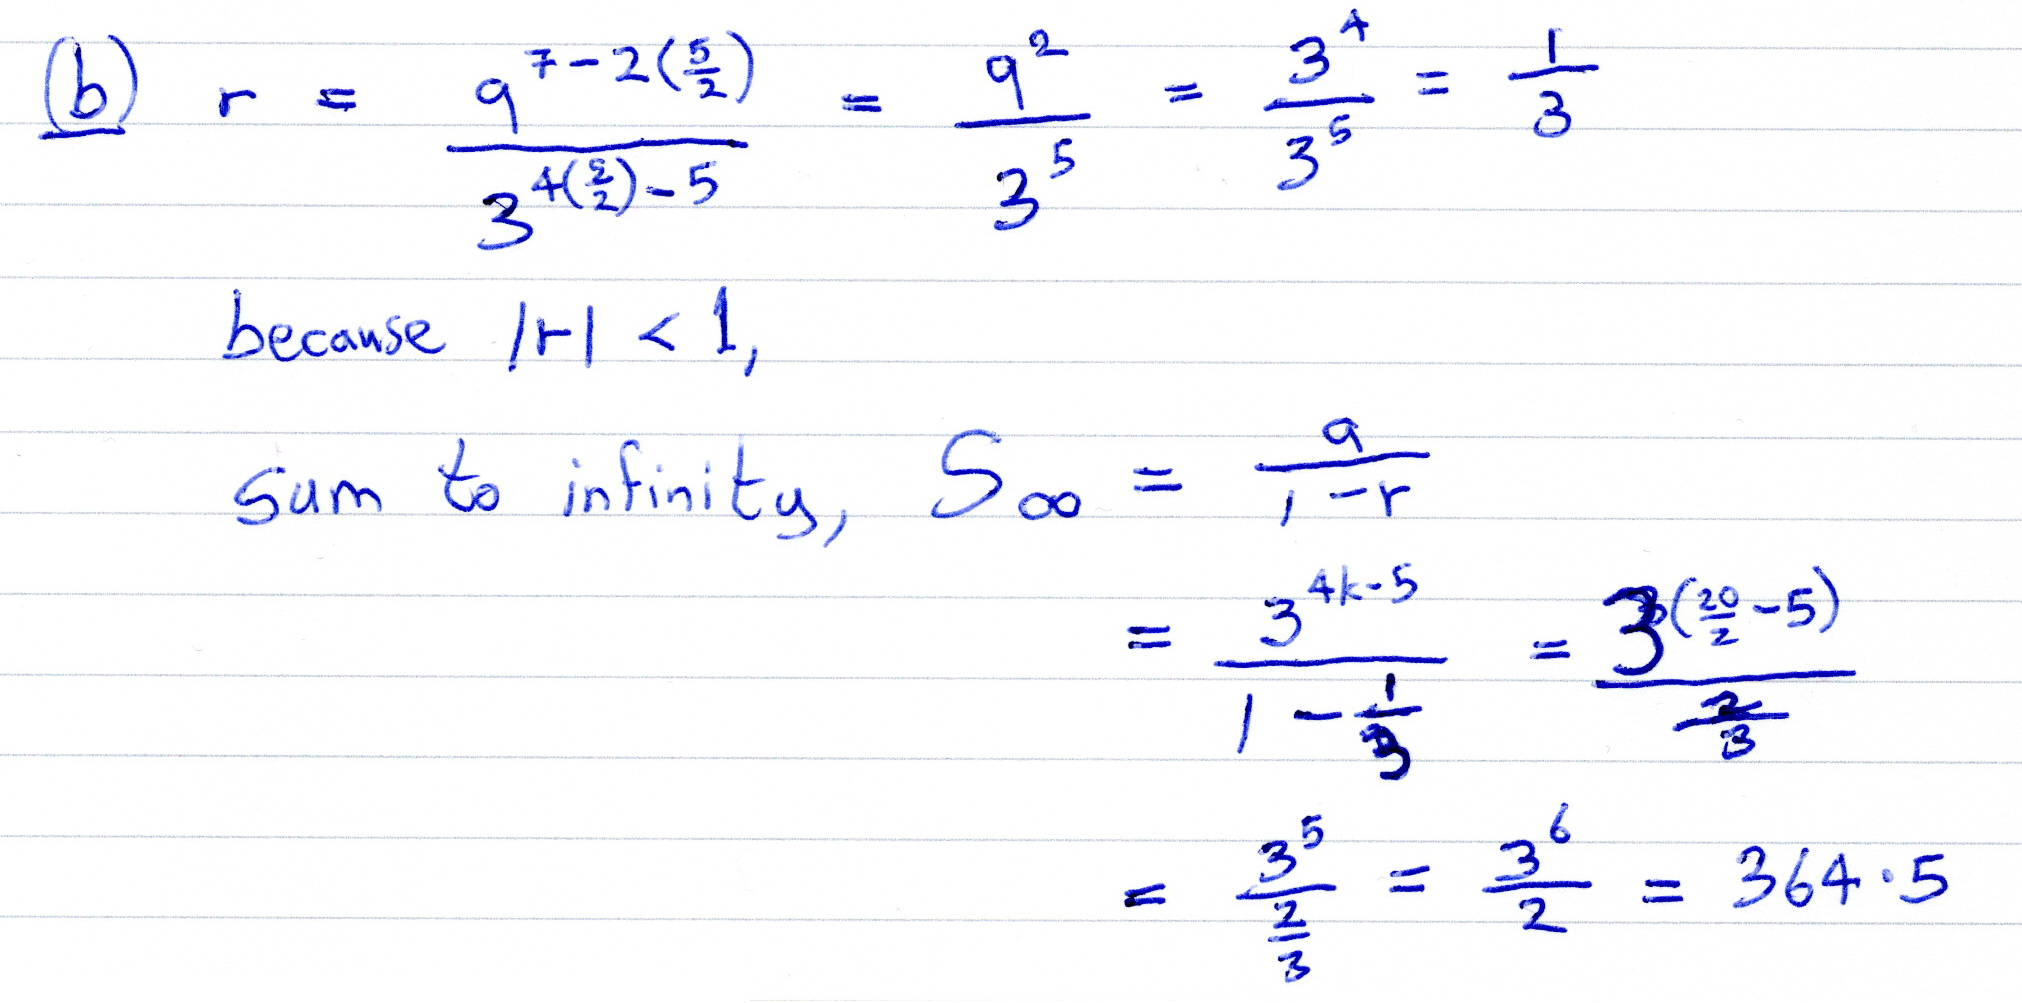 (b) r = 9^(7-2(5/2)) / 3^(4(5/2)-5) = 9^2 / 3^5 = 3^4 / 3^5 = 1/3
because |r| < 1,
sum to infinity, S∞ = a / (1-r)
= 3^(4k-5) / (1 - 1/3) = 3^(20/2 -5) / (2/3)
= 3^5 / (2/3) = 3^6 / 2 = 364·5